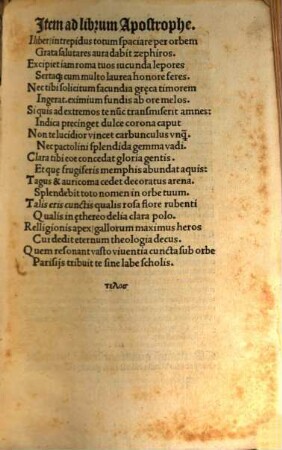 Item ad librum Apostrophe.
I liber: intrepidus totum spaciare per orbem
Grata salutares aura dabit zephiros.
Excipiet iam roma tuos iucunda lepores
Sertaqꝫ cum multo laurea honore feres.
Nec tibi solicitum facundia gręca timorem
Ingerat. eximium fundis ab ore melos.
Si quis ad extremos te nūc transmiserit amnes:
Indica precinget dulce corona caput
Non te lucidior vincet carbunculus vnqꝫ.
Nec pactolini splendida gemma vadi.
Clara tibi eoe concedat gloria gentis.
Et quę frugiferis memphis abundat aquis:
Tagus & auricoma cedet decoratus arena.
Splendebit toto nomen in orbe tuum.
Talis eris cunctis qualis rosa flore rubenti
Qualis in ęthereo delia clara polo.
Relligionis apex: gallorum maximus heros
Cui dedit eternum theologia decus.
Quem resonant vasto viuentia cuncta sub orbe
Parisijs tribuit te sine labe scholis.
τελος